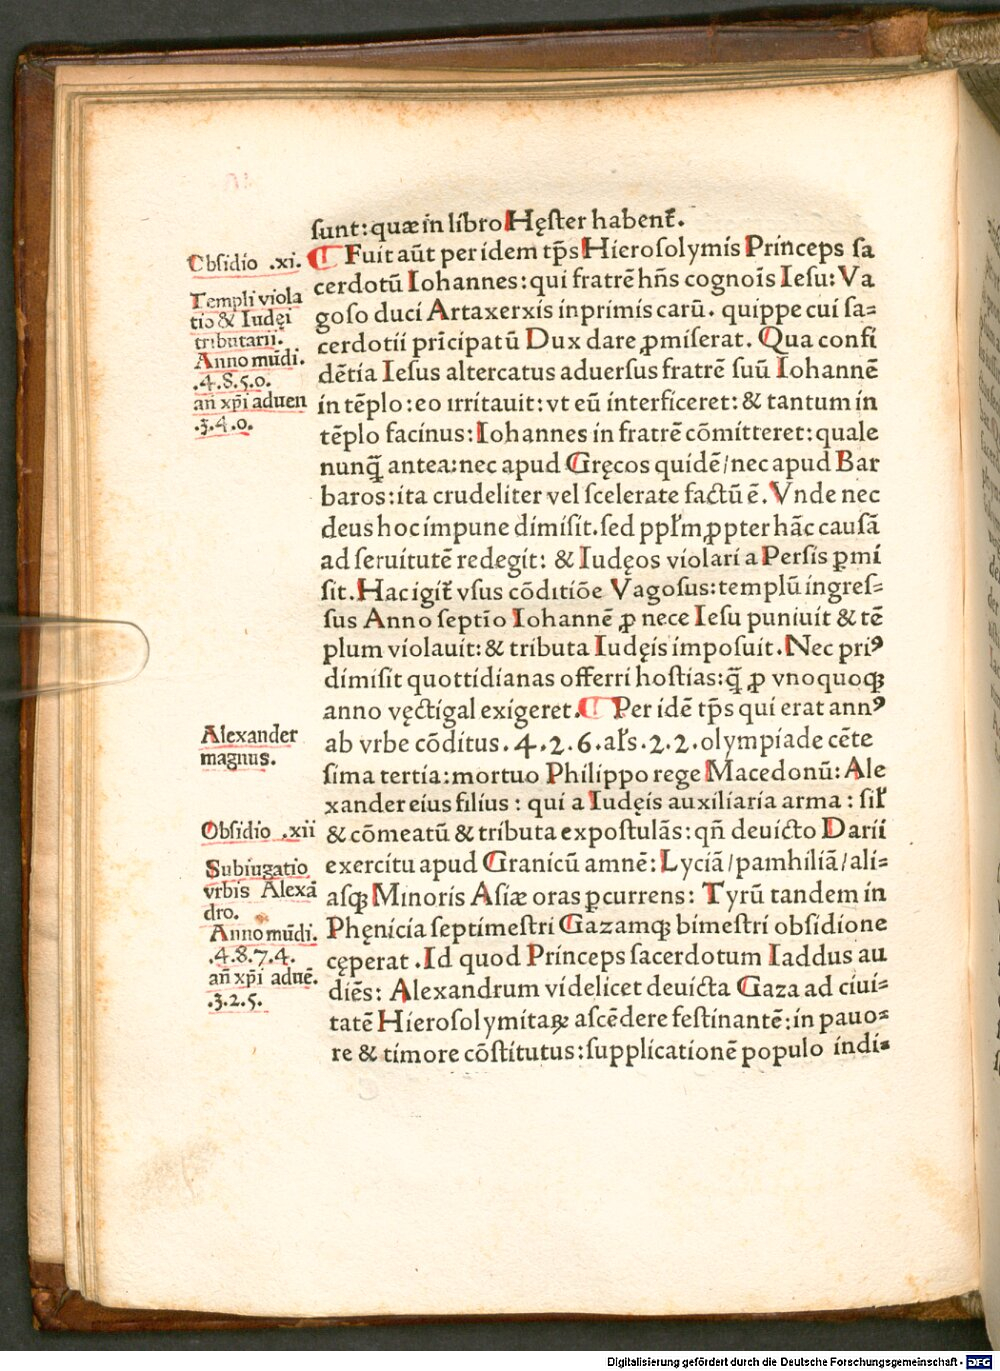 sunt: quæ in libro Hęster habent᷑.
¶ Fuit aūt per idem tp̄s Hierosolymis Princeps sa
cerdotū Iohannes: qui fratrē hn̄s cognoīs Iesu: Va
goso duci Artaxerxis inprimis carū. quippe cui sa=
cerdotii prīcipatū Dux dare ꝓmiserat. Qua confi
dētia Iesus altercatus aduersus fratrē suū Iohannē
in tēplo: eo irritauit: vt eū interficeret: & tantum in
tēplo facinus: Iohannes in fratrē cōmitteret: quale
nunq̄ antea: nec apud Gręcos quidē/nec apud Bar
baros: ita crudeliter vel scelerate factū ē. Vnde nec
deus hoc impune dimisit. sed ppl'm ꝓpter hāc causā
ad seruitutē redegit: & Iudęos violari a Persis ꝑmi
sit. Hac igit᷑ vsus cōditiōe Vagosus: templū ingres=
sus Anno septīo Iohannē ꝓ nece Iesu puniuit & tē
plum violauit: & tributa Iudęis imposuit. Nec priꝰ
dimisit quottidianas offerri hostias: q̄ ꝓ vnoquoqꝫ
anno vęctigal exigeret. ¶ Per idē tp̄s qui erat annꝰ
ab vrbe cōditus .4.2.6. al's .2.2. olympiade cēte
sima tertia: mortuo Philippo rege Macedonū: Ale
xander eius filius: qui a Iudęis auxiliaria arma: sil'
& cōmeatū & tributa expostulās: qn̄ deuicto Darii
exercitu apud Granicū amnē: Lyciā/pamhiliā/ali=
asqꝫ Minoris Asiæ oras ꝑcurrens: Tyrū tandem in
Phęnicia septimestri Gazamqꝫ bimestri obsidione
cęperat. Id quod Princeps sacerdotum Iaddus au
diēs: Alexandrum videlicet deuicta Gaza ad ciui=
tatē Hierosolymitaꝝ ascēdere festinantē: in pauo=
re & timore cōstitutus: supplicationē populo indi=
Obsidio .xi.
Templi viola
tio & Iudęi
tributarii.
Anno mūdi.
.4.8.5.0.
an̄ xp̄i aduen
.3.4.0.
Alexander
magnus.
Obsidio .xii
Subiugatio
vrbis Alexā
dro.
Anno mūdi.
.4.8.7.4.
an̄ xp̄i aduē.
.3.2.5.
Digitalisierung gefördert durch die Deutsche Forschungsgemeinschaft - DFG